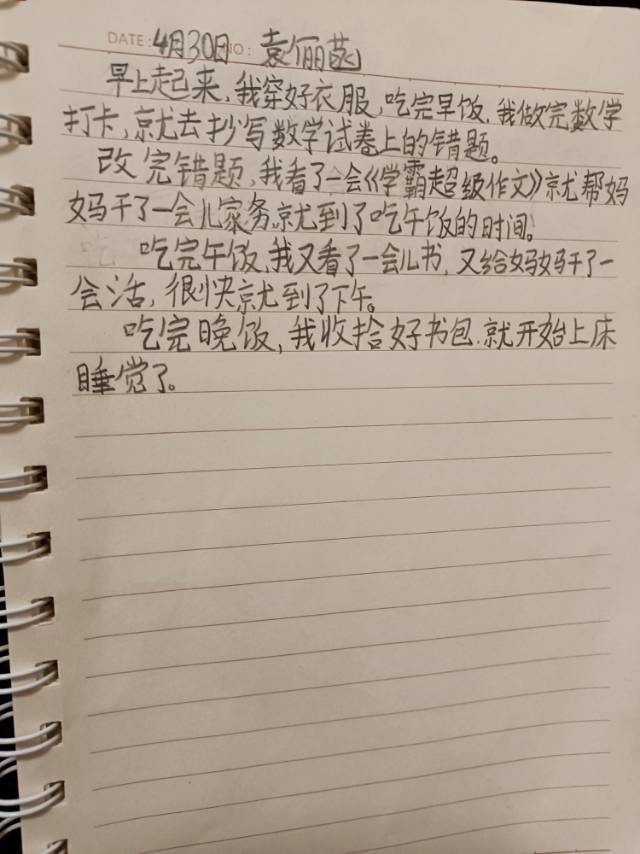 DATE: 4月30日 NO: 袁俪菡
早上起来,我穿好衣服,吃完早饭,我做完数学
打卡,就去抄写数学试卷上的错题。
改完错题,我看了一会《学霸超级作文》就帮妈
妈干了一会儿家务就到了吃午饭的时间。
吃完午饭,我又看了一会儿书,又给妈妈干了一
会活,很快就到了下午。
吃完晚饭,我收拾好书包.就开始上床
睡觉了。